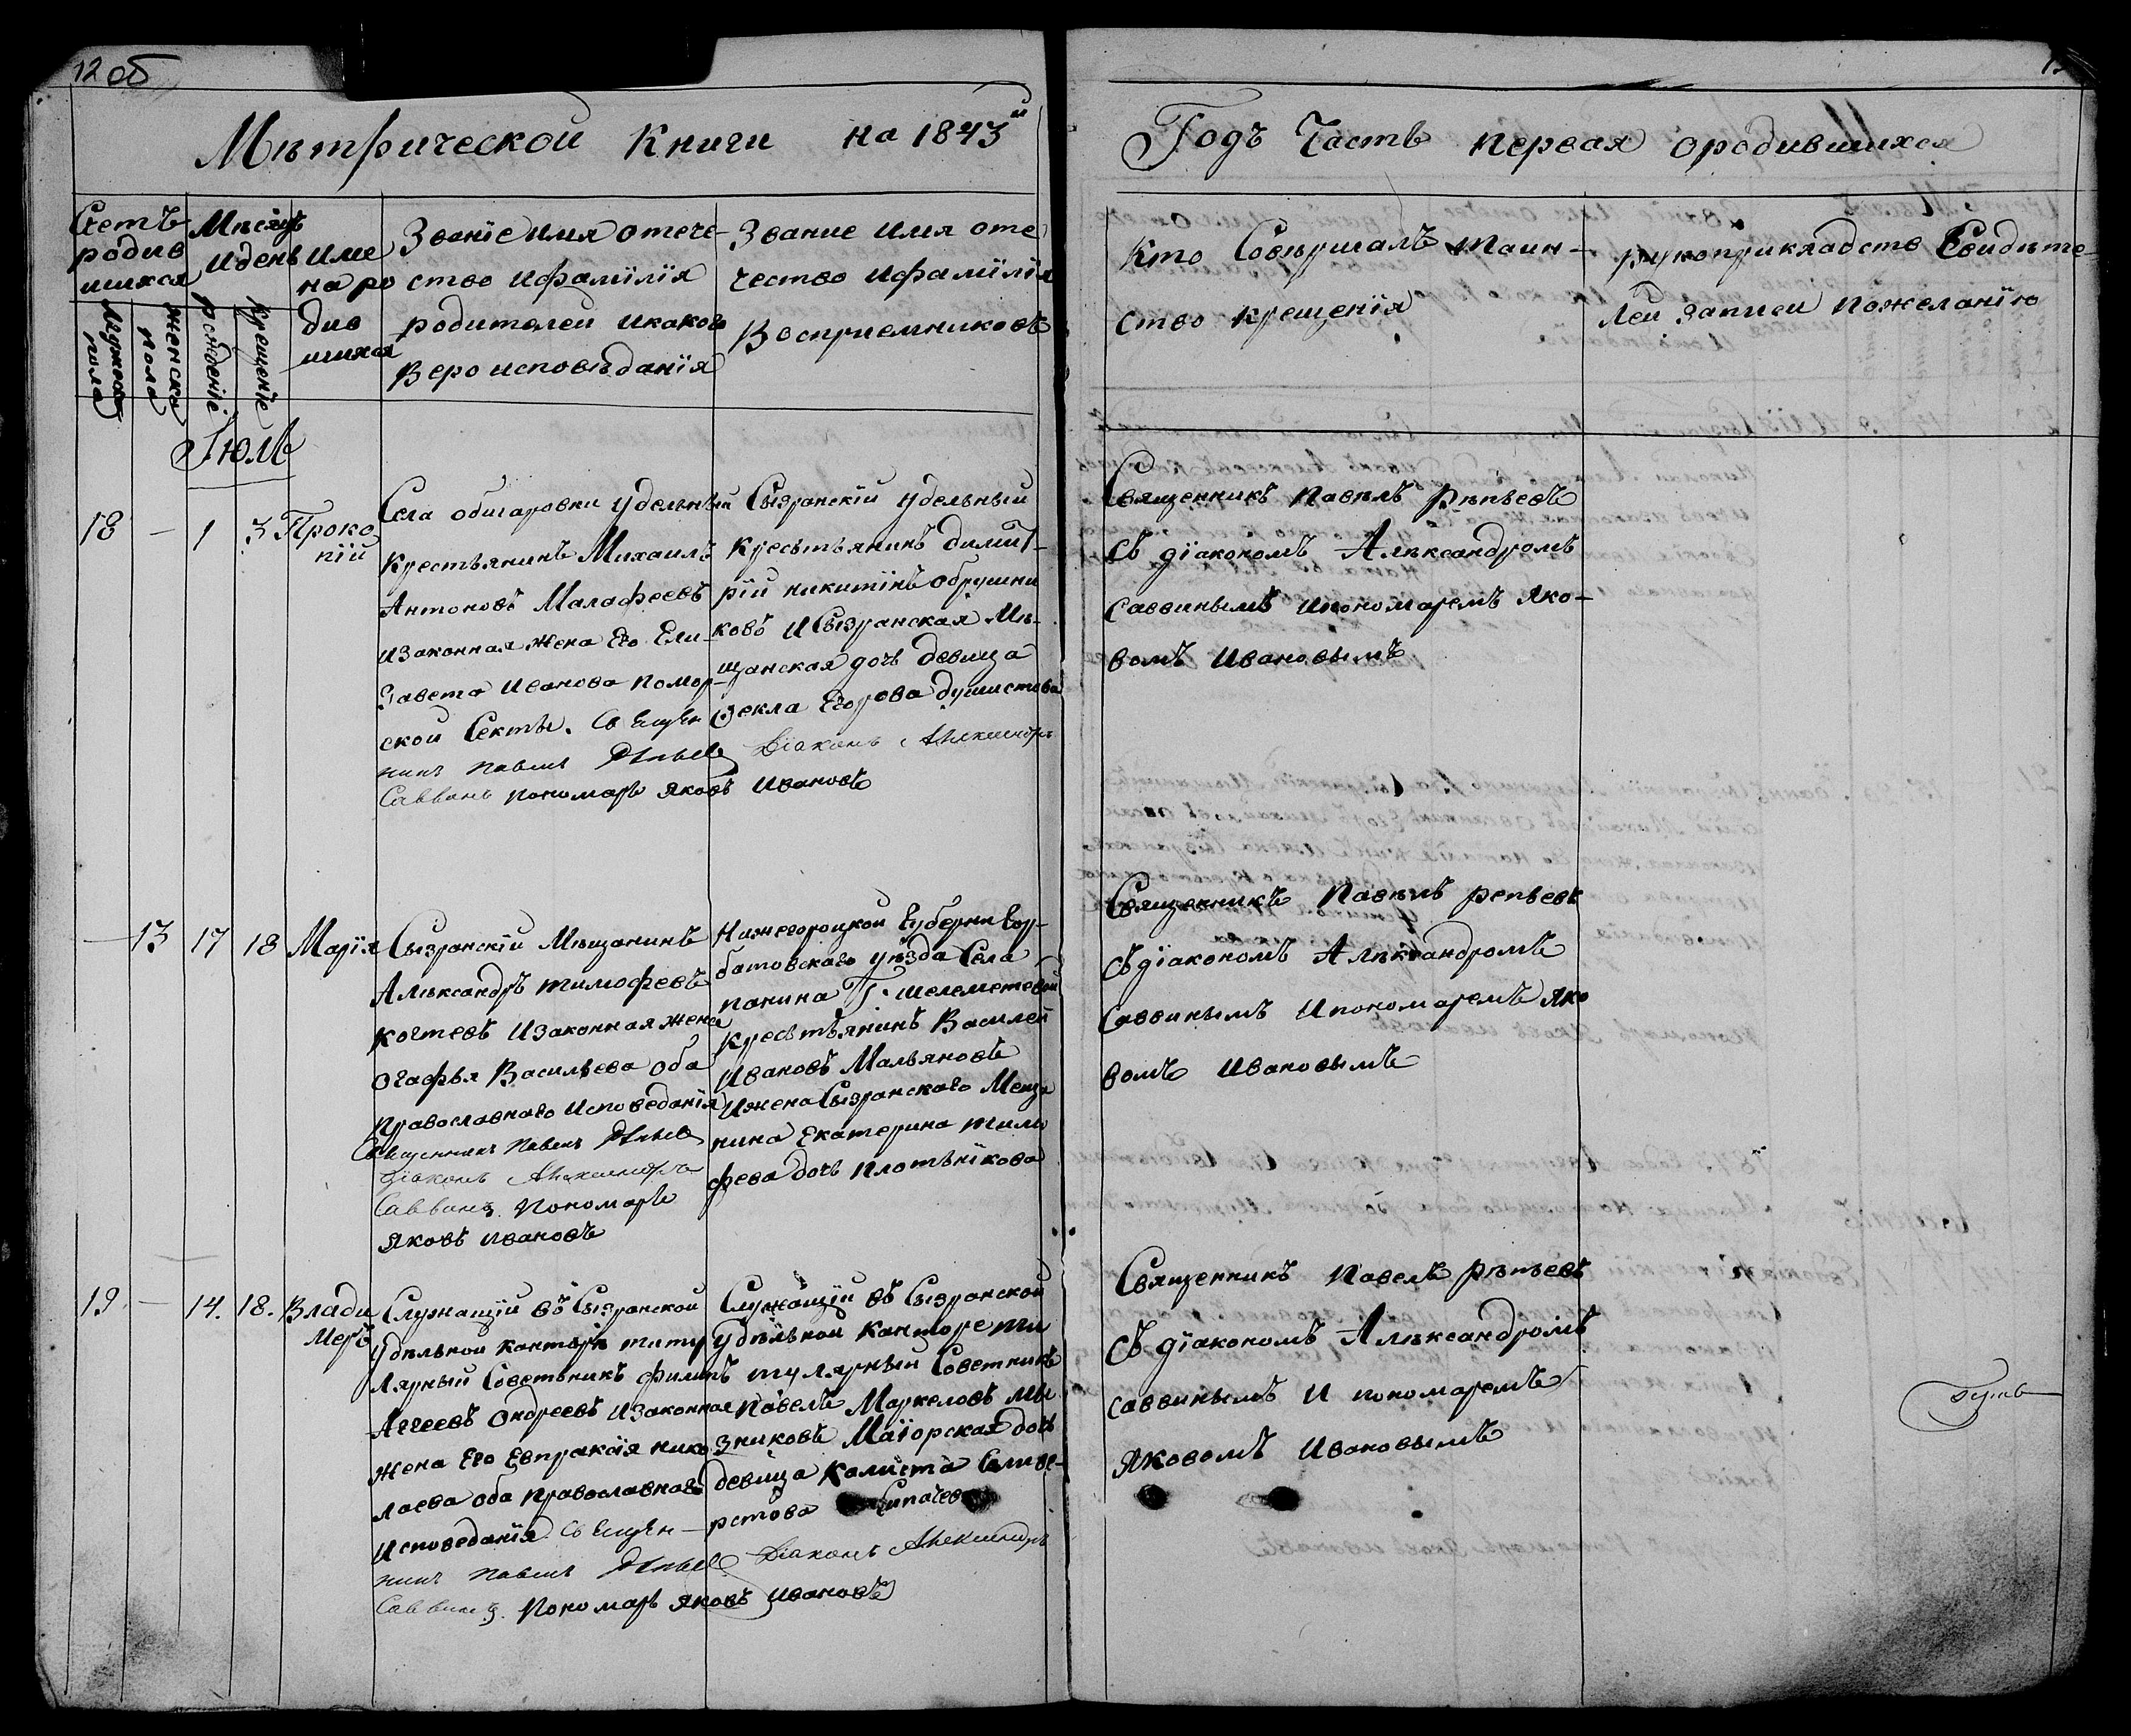 12 об
Мѣтрической Книги на 1843й
Годъ Часть первая ородившихся
Счетъ родив шихся
Мужеска пола
женска пола
Мѣсяцъ идень
рождение
крещение
Име на ро див шихся
Званїе имя отече-
ство ифамїлїя
родителей икакого
Вероисповѣданїя
Звание имя оте
чество ифамїлїя
Восприемниковъ
Кто Совершалъ таин-
ство крещенїя
рукоприкладство Свидѣте-
лей записи пожеланїю
Іюль
18 — 1 3 Проко
пїй
Села обшаровки удельный
Крестьянинъ Михаилъ
Антоновъ Малафеевъ
изаконная жена Его Ели-
завета Иванова помор-
ской Секты. Священ
никъ Павелъ Рѣпьев Дїаконъ Александръ
Саввинъ пономарь Яковъ Ивановъ
Сызранскїй удельный
Кресьтьянинъ димит-
рїй никитїнъ обрушни
ковъ и Сызранская Мѣ-
щанская дочь девица
Ѳекла Егорова душистова
Священникъ Павѣлъ Рѣпьевъ
съ дїакономъ Алѣксандромъ
Саввинымъ ипономаремъ Яко-
вомъ Ивановымъ
— 13 17 18 Марїя
Сызранскїй Мѣщанинъ
Алѣксандръ тимофеевъ
Коктевъ изаконная жена
огафья Васильева оба
православнаго исповеданїя
Священникъ Павелъ Рѣпьев
Дїаконъ Александръ
Саввинъ Пономарь
Яковъ Ивановъ
Нижегороцкой Губернии Гор-
батовскаго уѣзда Села
панина Г. шелеметевой
кресьтьянинъ Василей
Ивановъ Мальяновъ
Ижена Сызранскаго Меща
нина Екатерина тимо
феева дочь плотьнїкова
Священникъ Павѣлъ репьевъ
съ дїакономъ Алѣксандромъ
Саввинымъ ипономаремъ Яко
вомъ Ивановымъ
19 — 14. 18. Влади
меръ
Служащїй въ Сызранской
удѣльной канторѣ титу
лярный Советьникъ филипъ
Агеевъ Андреевъ изаконная
жена Его Евпраксїя нико
лаева оба православнаго
Исповеданїя. Священ—
никъ Павелъ Рѣпьев Дїаконъ Александръ
Саввинъ. Пономарь Яковъ Ивановъ
Служащїй въ Сызранской
удѣльной канторе ти
тулярный Советникъ
Павелъ Маркеловъ мы
зниковъ Маїорская дочь
девица Калиста Селиве-
рстова Сипачева
Священникъ Павелъ Рѣпьевъ
съ дїакономъ Алѣксандромъ
саввинымъ и пономаремъ
Яковомъ Ивановымъ